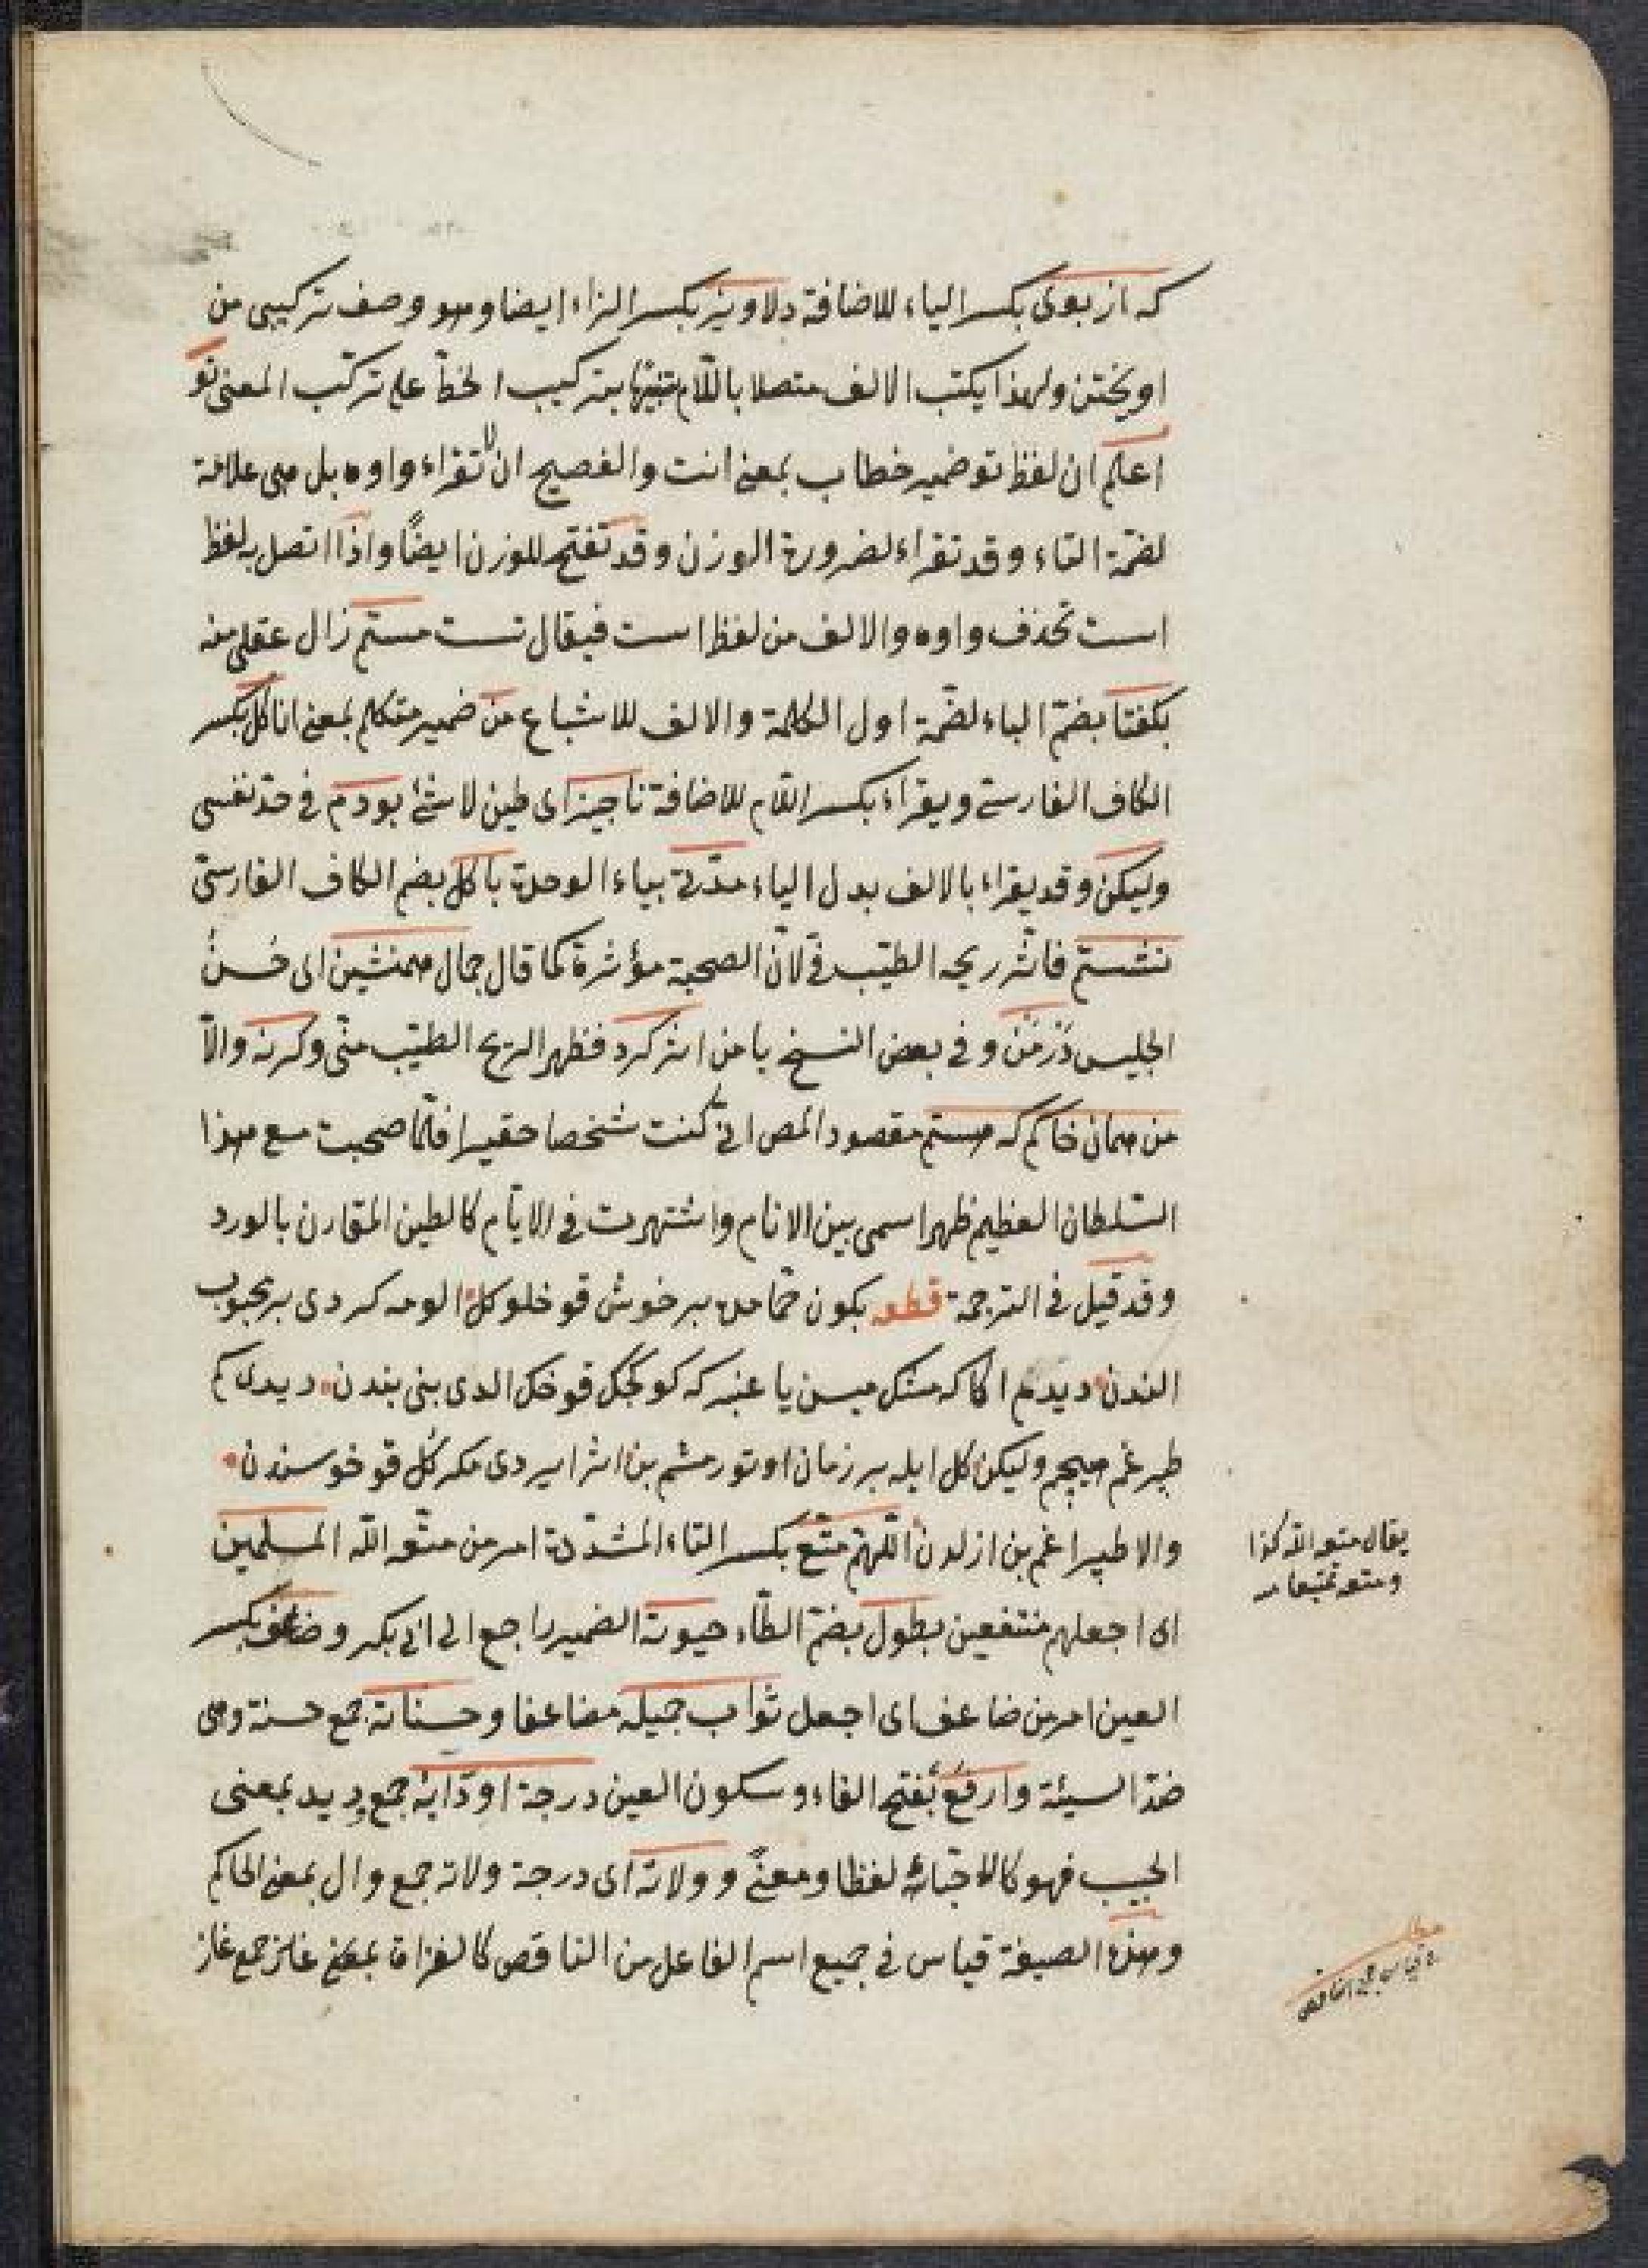 كه از بوى بكسر الياء للاضافة دلاويز بكسر الزاء ايضا وهو وصف تركيبى من
اويختن ولهذا يكتب الالف متصلا باللام تنبيها بتركيب الخط على تركب المعنى تو
اعلم ان لفظ تو ضمير خطاب بمعنى انت والفصيح ان لا تقراء واوه بل هى علامة
لضمّة التاء وقد تقراء لضرورة الوزن وقد تفتح للوزن ايضًا واذا اتصل به لفظ
است تحذف واوه والالف من لفظ است فيقال تست مستم زال عقلى منه
بكفتا بضمّ الباء لضمّة اول الكلمة والالف للاشباع من ضمير متكلم بمعنى انا كل بكسر
الكاف الفارسى ويقراء بكسر اللام للاضافة ناچيز اى طين لا شئ بودم فى حد نفسى
وليكن وقد يقراء بالالف بدل الياء مدّتى بياء الوحدة با كل بضم الكاف الفارسىّ
نشستم فاثر ريحه الطيّب فىّ لانّ الصحبة مؤثرة كما قال جمال همنشين اى حسن
الجليس در من وفى بعض النسخ با من اثر كرد فظهر الريح الطيّب منّى وكرنه والاّ
من همان خاكم كه هستم مقصود المص انى كنت شخصا حقيرا فلمّا صحبت مع هذا
السّلطان العظيم ظهر اسمى بين الانام واشتهرت فى الايّام كالطين المقارن بالورد
وقد قيل فى الترجمة قطعه بكون حمّامده بر خوش قوخلو كل الومه كردى بر محبوب
الندن ديدم اكا كه مسك ميسن يا عنبر كه كوكجك قوخك الدى بنى بندن ديدى كم
طپرغم هيچم وليكن كل ايله بر زمان اوتورمشم بن اثر ايردى مكر كل قوخوسندن
والا طپراغم بن ازلدن اللّهمّ متّع بكسر التاء المشدّدة امر من متّعه اللّه المسلمين
اى اجعلهم منتفعين بطول بضمّ الطّاء حيوته الضمير راجع الى ابى بكر وضاعف بكسر
العين امر من ضاعف اى اجعل ثواب جميله مضاعفا وحسناته جمع حسنة وهى
ضدّ السيئة وارفع بفتح الفاء وسكون العين درجة اودّائه جمع وديد بمعنى
الحبيب فهو كالاحبّائه لفظا ومعنًى وولاته اى درجة ولاته جمع وال بمعنى الحاكم
وهذه الصيغة قياس فى جميع اسم الفاعل من الناقص كالغزاة بمعنى غاز جمع غاز
يقال متعه اللّه كذا
ومتعه تمتيعا
مطلب